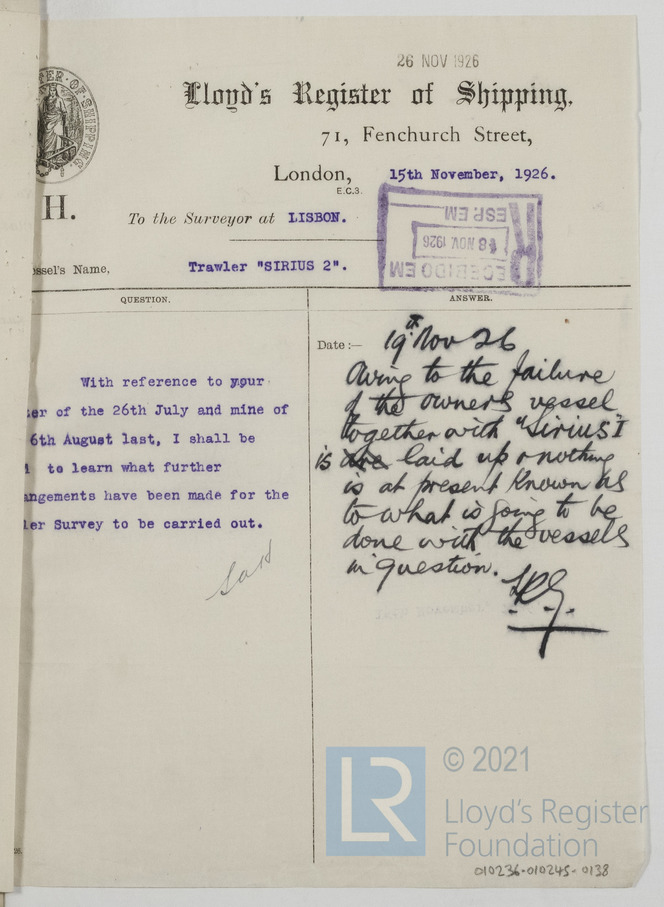 26 NOV 1926
Lloyd's Register of Shipping,
71, Fenchurch Street,
London, 15th November, 1926.
E.C.3.
H.
To the Surveyor at LISBON.
RECEBIDO EM
18 NOV. 1926
ESP. EM
ssel's Name, Trawler "SIRIUS 2".
QUESTION.
ANSWER.
With reference to your
er of the 26th July and mine of
6th August last, I shall be
to learn what further
angements have been made for the
ler Survey to be carried out.
Date:— 19th Nov 26
Owing to the failure
of the owners vessel
together with "Sirius I
is are laid up & nothing
is at present known as
to what is going to be
done with the vessels
in question.
© 2021
LR
Lloyd's Register
Foundation
010236-010245-0138